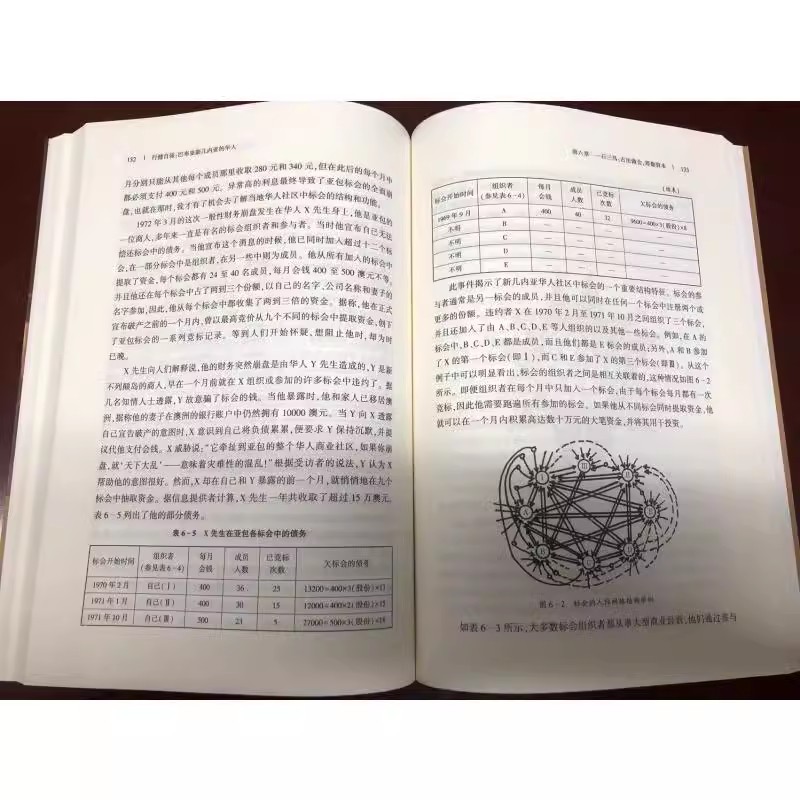 152 | 行健自强:巴布亚新几内亚的华人
月分别只能从其他每个成员那里收取 280 元和 340 元,但在此后的每个月中
都必须支付 400 元和 500 元。异常高的利息最终导致了亚包标会的全面崩
盘,也就在那时,我才有了机会去了解当地华人社区中标会的结构和功能。
1972 年 3 月的这次一般性财务崩盘发生在华人 X 先生身上,他是亚包的
一位商人,多年来一直是有名的标会组织者和参与者。当时他宣布自己无法
偿还标会中的债务。当他宣布这个消息的时候,他已同时加入超过十二个标
会,在一部分标会中是组织者,在另一些中则为成员。他从所有加入的标会中
提取了资金,每个标会都有 24 至 40 名成员,每月会钱 400 至 500 澳元不等,
并且他还在每个标会中占了两到三个份额,以自己的名字、公司名称和妻子的
名字参加,因此,他从每个标会中都收集了两到三倍的资金。据称,他在正式
宣布破产之前的一个月内,曾以最高竞价从九个不同的标会中提取资金,创下
了亚包标会的一系列竞标记录。等到人们开始怀疑,想阻止他时,却为时
已晚。
X 先生向人们解释说,他的财务突然崩盘是由华人 Y 先生造成的,Y 是新
不列颠岛的商人,早在一个月前就在 X 组织或参加的许多标会中违约了。据
几名知情人士透露,Y 故意骗了标会的钱。当他暴露时,他和家人已移居澳
洲,据称他的妻子在澳洲的银行账户中仍然拥有 10000 澳元。当 Y 向 X 透露
自己宣告破产的意图时,X 意识到自己将负债累累,便要求 Y 保持沉默,并提
议代他支付会钱。X 威胁说:“它牵扯到亚包的整个华人商业社区,如果你崩
盘,就‘天下大乱’——意味着灾难性的混乱!”根据受访者的说法,Y 认为 X
帮助他的意图很好。然而,X 却在自己和 Y 暴露的前一个月,就悄悄地在九个
标会中抽取资金。据信息提供者计算,X 先生一年共收取了超过 15 万澳元。
表 6-5 列出了他的部分债务。
表 6-5 X 先生在亚包各标会中的债务
标会开始时间 组织者(参见表 6-4) 每月会钱 成员人数 已竞标次数 欠标会的债务
1970 年 2 月 自己(Ⅰ) 400 36 25 13200=400×3(股份)×11
1971 年 1 月 自己(Ⅱ) 400 30 15 12000=400×2(股份)×15
1971 年 10 月 自己(Ⅲ) 500 23 5 27000=500×3(股份)×18
第六章 一石三鸟:占住做会,筹措资本 | 153
(续表)
标会开始时间 组织者(参见表 6-4) 每月会钱 成员人数 已竞标次数 欠标会的债务
1969 年 9 月 A 400 40 32 9600=400×3(股份)×8
不明 B — — — —
不明 C — — — —
不明 D — — — —
不明 E — — — —
此事件揭示了新几内亚华人社区中标会的一个重要结构特征。标会的参
与者通常是另一标会的成员,并且他可以同时在任何一个标会中注册两个或
更多的份额。违约者 X 在 1970 年 2 月至 1971 年 10 月之间组织了三个标会,
并且还加入了由 A、B、C、D、E 等人组织的以及其他一些标会。例如,在 A 的
标会中,B、C、D、E 都是成员,而且他们都是 E 标会的成员;另外,A 和 B 参加
了 X 的第一个标会(即Ⅰ),而 C 和 E 参加了 X 的第三个标会(即Ⅲ)。从这个
例子中可以明显看出,标会的组织者之间是相互关联着的,这种情况如图 6-2
所示。即便组织者在每个月中只加入一个标会,由于每个标会每月都有一次
竞标,因此他需要跑遍所有参加的标会。如果他从不同标会同时提取资金,他
就可以在一个月内积累高达数十万元的大笔资金,并将其用于投资。
Ⅱ
Ⅰ
A
B
C
图 6-2 标会的人际网络结构举例
如表 6-3 所示,大多数标会组织者都从事大型商业经营,他们通过参与